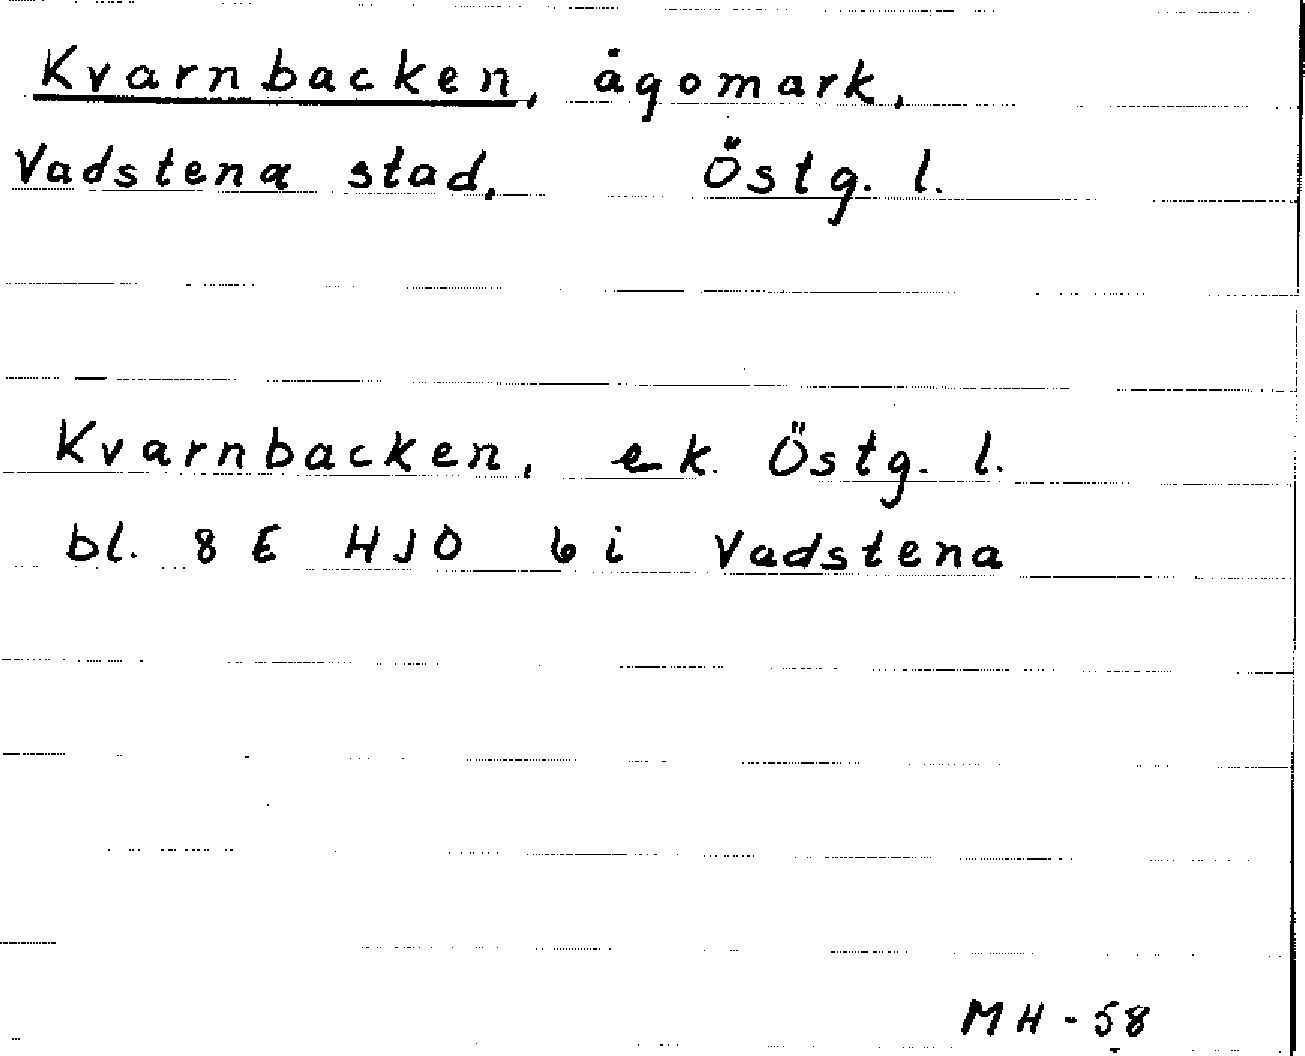 Kvarnbacken, ågomark,
Vadstena stad, Östg. l.
Kvarnbacken, ek. Östg. l.
bl. 8 E HJO 6 i Vadstena
MH-58